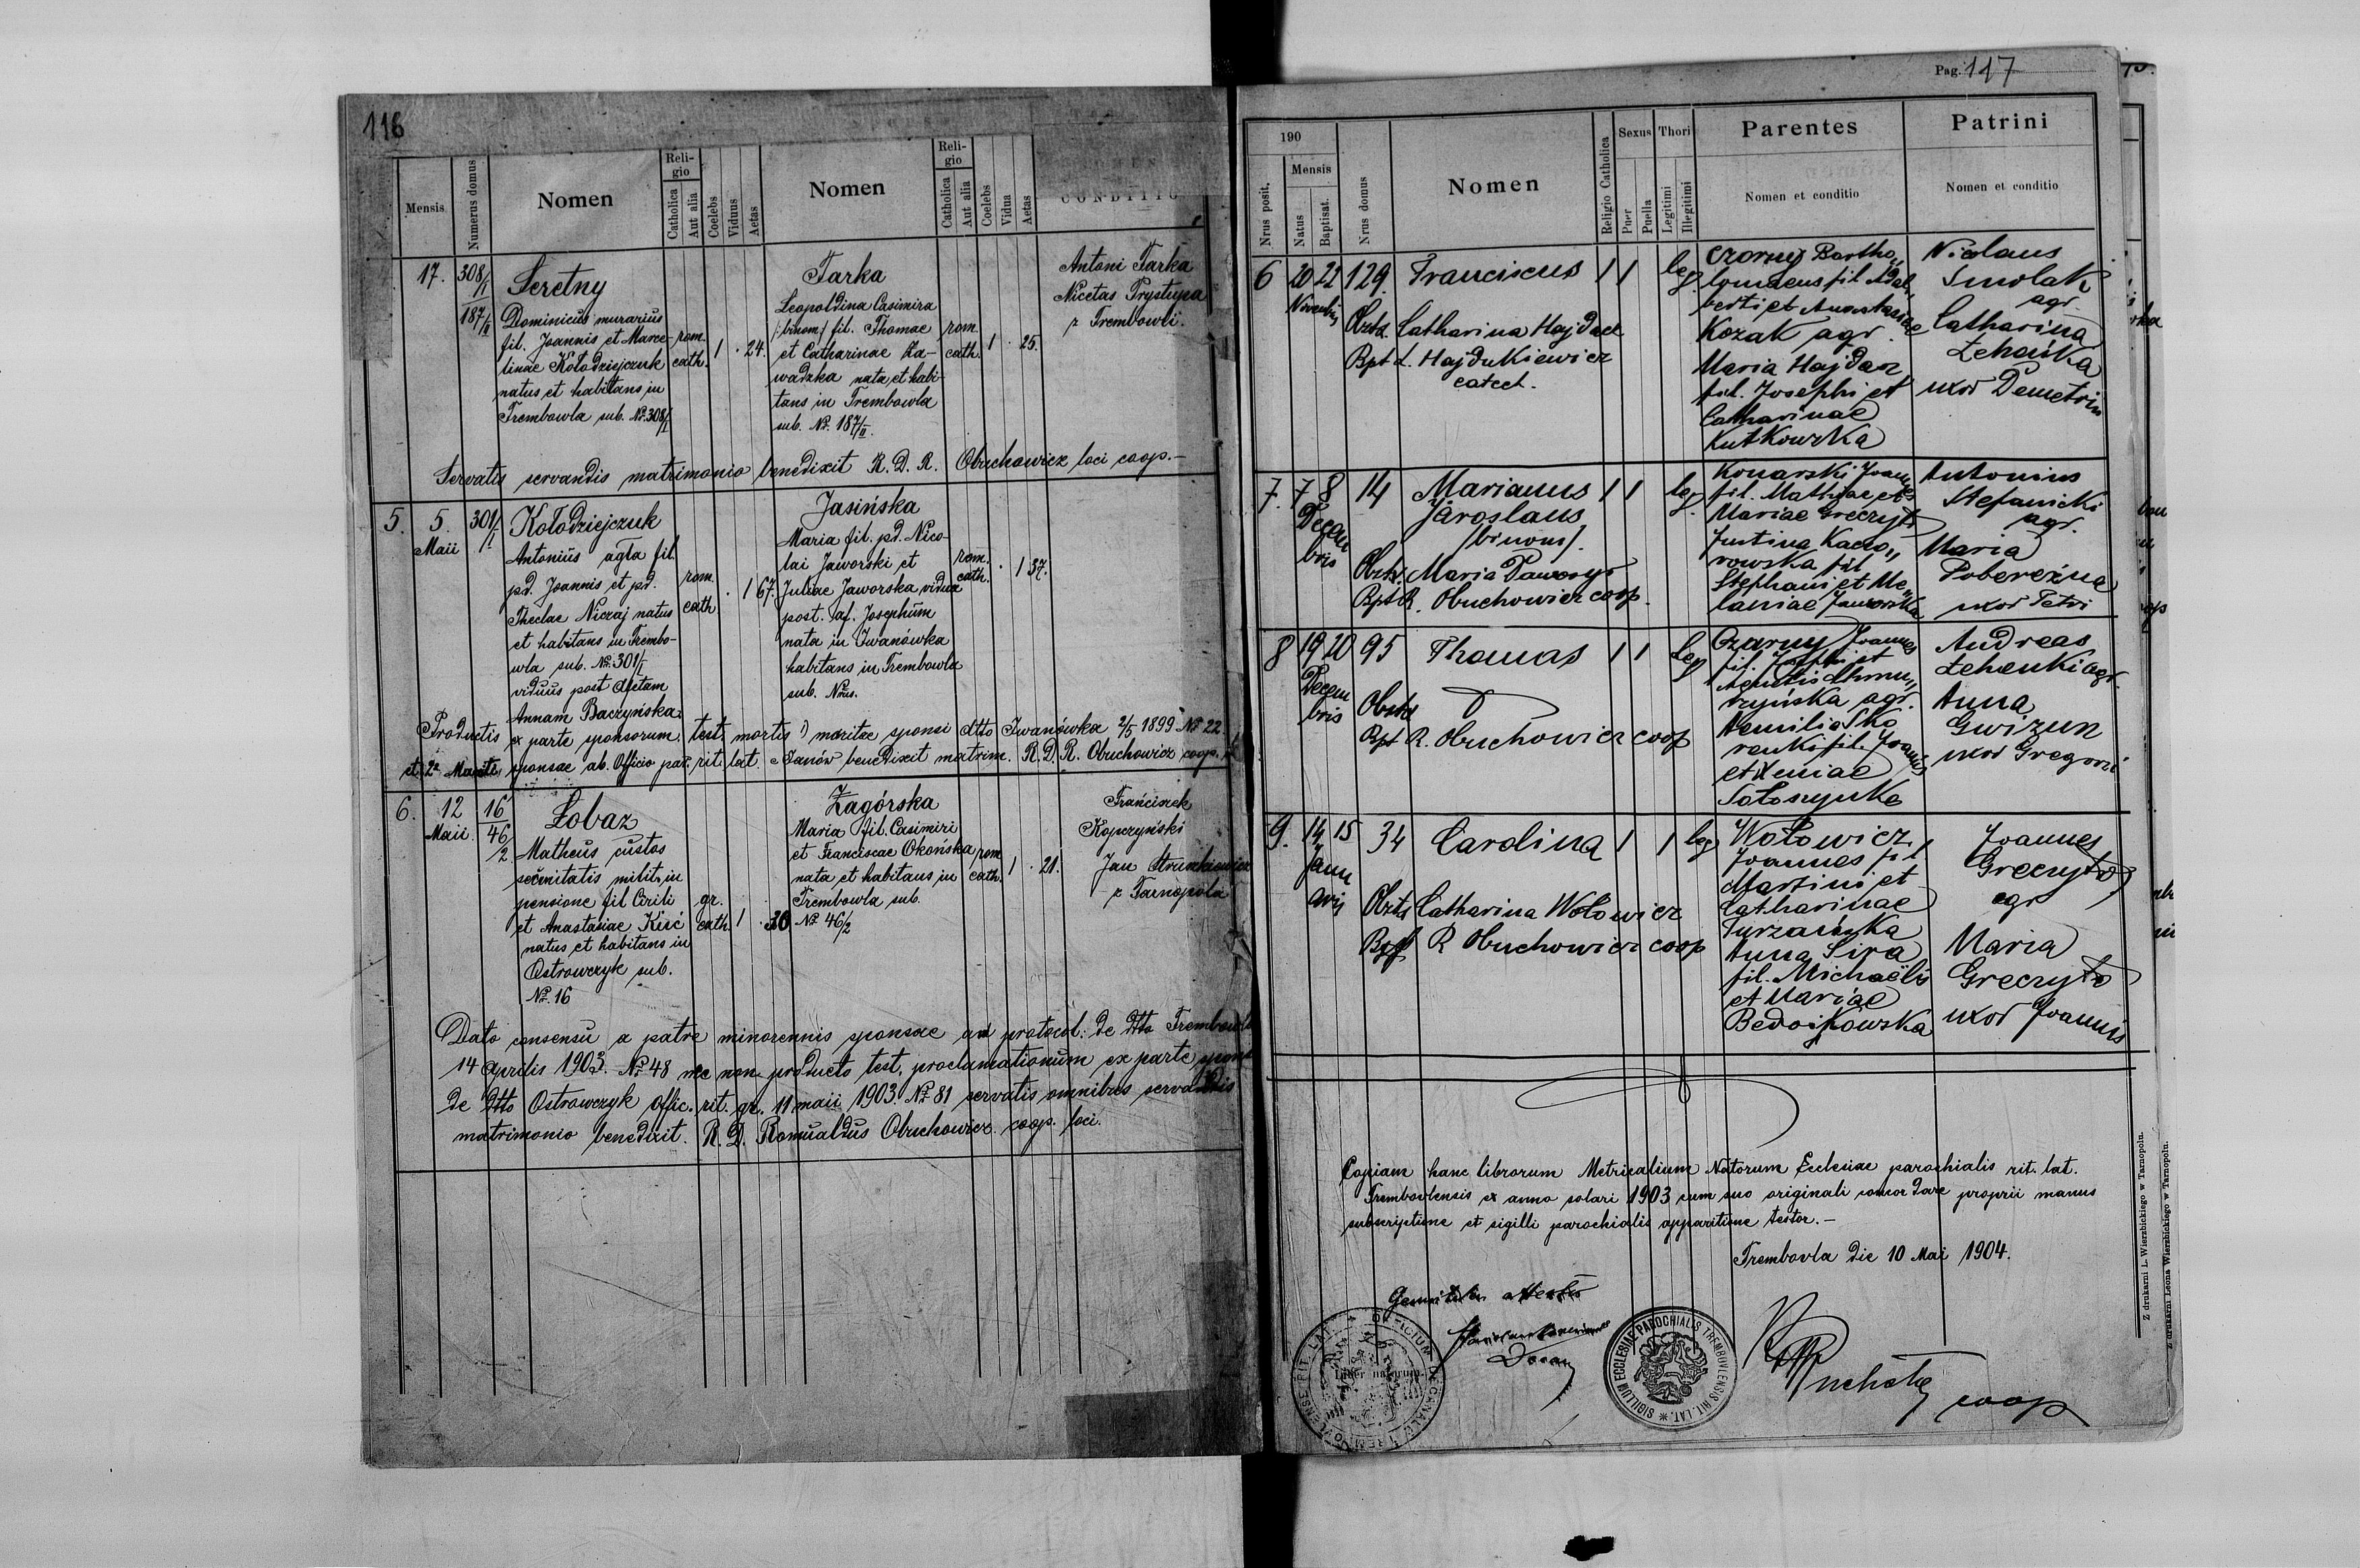 116
Mensis
Numerus domus
Nomen
Religio
Catholica
Aut alia
Coelebs
Viduus
Aetas
Nomen
Religio
Catholica
Aut alia
Coelebs
Vidua
Aetas
CONDITIO
17. 308/I 187/II
Seretny
Dominicus murarius
fil. Joannis et Marce-
linae Kołodziejczuk
natus et habitans in
Trembowla sub. No. 308/I
rom. cath. 1 . 24.
Tarka
Leopoldina Casimira
/:binom:/ fil. Thomae
et Catharinae Za-
wadzka nata et habi-
tans in Trembowla
sub. No. 187/II.
rom. cath. 1 . 25.
Antoni Tarka
Nicetas Prystupa
z Trembowli.
Servatis servandis matrimonio benedixit R. D. R. Obuchowicz loci coop.-
5. 5. Maii 301/I
Kołodziejczuk
Antonius agta fil.
pd. Joannis et pd.
Theclae Niczaj natus
et habitans in Trembo-
wla sub. No. 301/I
viduus post
Annam Baczyńska.
rom. cath . 1 67.
Jasińska
Maria fil. pd. Nico-
lai Jaworski et
Juliae Jaworska vidua
post. Josephum
nata in Iwanówka
habitans in Trembowla
sub. Nrus.
rom. cath. . 1 37.
Productis ex parte sponsorum test. mortis 1) maritae sponsi dtto Iwanówka 2/5 1899 No 22
et 2. sponsae ab. Officio par. rit. lat. Janów benedixit matrim. R. D. R. Obuchowicz coop.
6. 12 Maii. 16 46/2
Łobaz
Matheus custos
securitatis milit. in
pensione fil Cirili
et Anastasiae Kiść
natus et habitans in
Ostrowczyk sub.
No. 16
gr. cath. 1 . 30
Zagórska
Maria fil. Casimiri
et Franciscae Okońska
nata et habitans in
Trembowla sub.
No 46/2
rom cath. 1 . 21.
Franciszek
Kopczyński
Jan
z Tarnopola
Dato consensu a patre minorennis sponsae ad protocol: de dtto Trembowla
14 Aprilis 1903. No 48 nec non producto test. proclamationum ex parte
de dtto Ostrowczyk offic. rit. gr. 11 maii 1903. No 81 servatis omnibus servandis
matrimonio benedixit. R. D. Romualdus Obuchowicz coop. loci.
Pag. 117
190
Nrus posit.
Mensis
Natus
Baptisat.
Nrus domus
Nomen
Religio Catholica
Sexus
Puer
Puella
Thori
Legitimi
Illegitimi
Parentes
Nomen et conditio
Patrini
Nomen et conditio
6 20 22 Novembris 129.
Franciscus 1 1 leg.
Obstx. Catharina Hajdacz
Bpt Ł. Hajdukiewicz
catech.
Czorny Bartho„
lomaeus fil. Adal„
berti et Anastasiae
Kozak agr.
Maria Hajdacz
fil. Josephi et
Catharinae
Kutkowska
Nicolaus
Smolak
agr.
Catharina
Łehańka
uxor Demetrii
7. 7 8 Decembris 14
Marianus
Jaroslaus
/binom/.
1 1 leg.
Obstx. Maria
Bpt R. Obuchowicz coop.
Konarski Joannes
fil. Mathiae et
Mariae Greczyło
Justina Kaczo„
rowska fil
Stephani et Me„
laniae Jaworska
Antonius
Stefanicki
agr.
Maria
Pobereżna
uxor Petri
8 19 20 Decembris 95
Thomas 1 1 leg
Obstx
Bpt R. Obuchowicz coop
Czarny Joannes
fil. Josephi et
Agnetis
agr.
Aemilia Sko
renki fil. Joannis
et Xeniae
Sołoszynka
Andreas
Łehanki agr.
Anna
Gwizun
uxor Gregorii
9. 14 15 Januarij 34
Carolina 1 1 leg
Obstx Catharina Wołowicz
Bapt R Obuchowicz coop
Wołowicz
Joannes fil.
Martini et
Catharinae
Turzańska
Anna Sira
fil. Michaëlis
et Mariae
Joannes
Greczyło
agr
Maria
Greczyło
uxor Joannis
Copiam hanc librorum Metricalium Natorum Ecclesiae parochialis rit. lat.
Trembovlensis ex anno solari 1903 cum suo originali concordare proprii manus
subscriptione et sigilli parochialis apparitione testor.-
Trembovla die 10 Mai 1904.
coop
SIGILLUM ECCLESIAE PAROCHIALIS TREMBOVLENSIS RIT. LAT.
Liber natorum.
Z drukarni L. Wierzbickiego w Tarnopolu.
Z drukarni Leona Wierzbickiego w Tarnopolu.